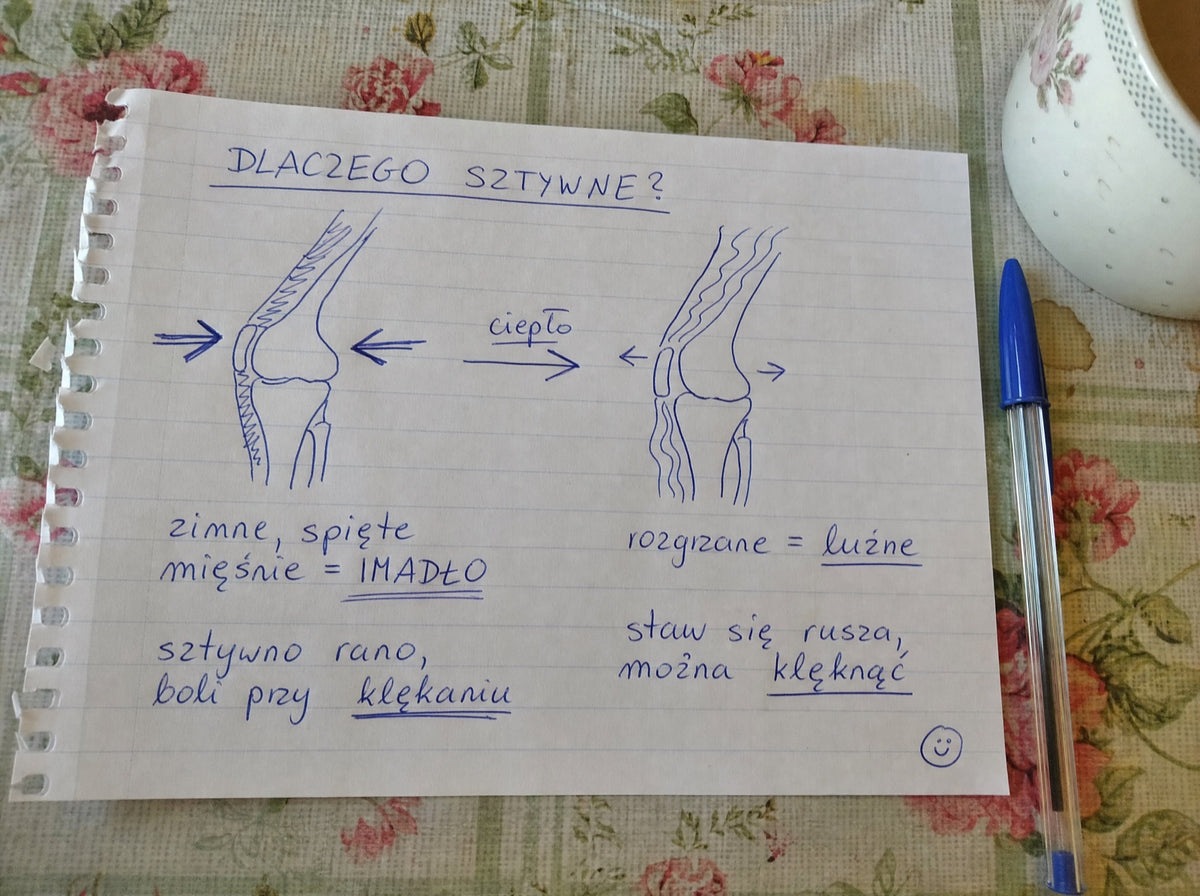 DLACZEGO SZTYWNE?
ciepło
zimne, spięte
mięśnie = IMADŁO
sztywno rano,
boli przy klękaniu
rozgrzane = luźne
staw się rusza,
można klęknąć